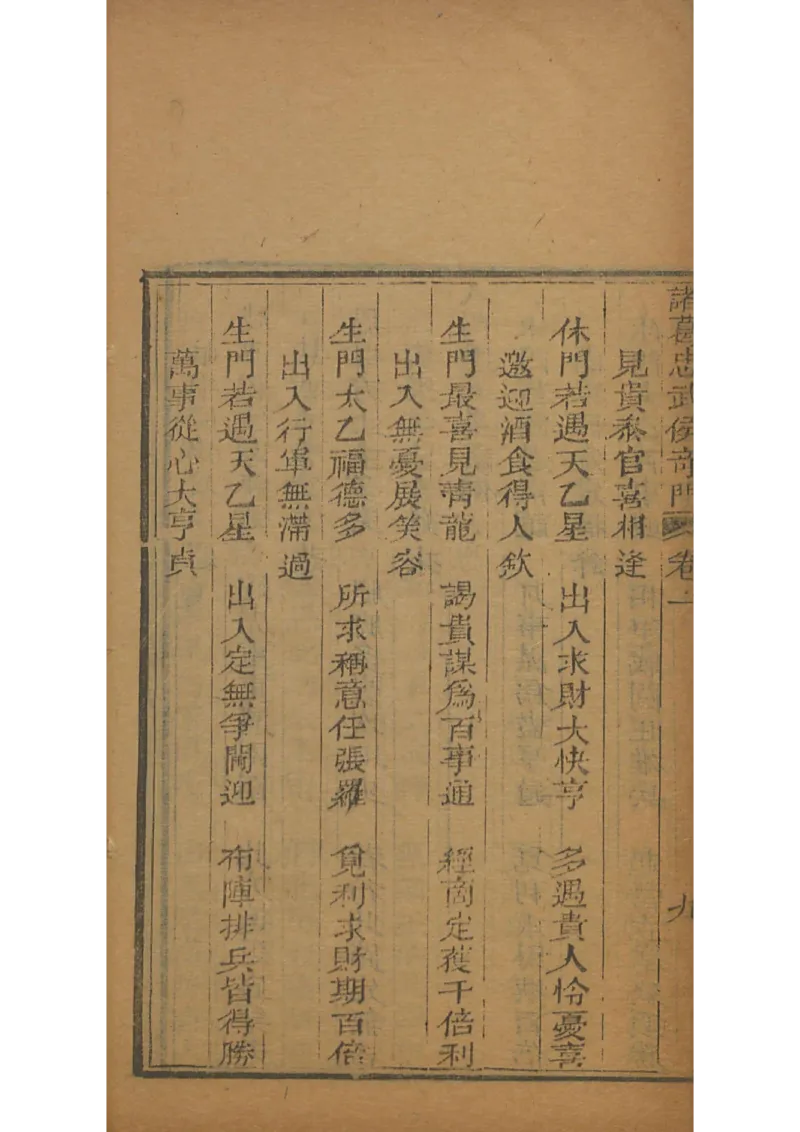 諸葛忠武侯奇門 卷一 九
見貴參官喜相逢
休門若遇天乙星 出入求財大快亨 多遇貴人怜憂喜
邀迎酒食得人欽
生門最喜見靑龍 謁貴謀爲百事通 經商定獲千倍利
出入無憂展笑容
生門太乙福德多 所求稱意任張羅 覓利求財期百倍
出入行軍無滯過
生門若遇天乙星 出入定無爭鬧迎 布陣排兵皆得勝
萬事從心大亨貞